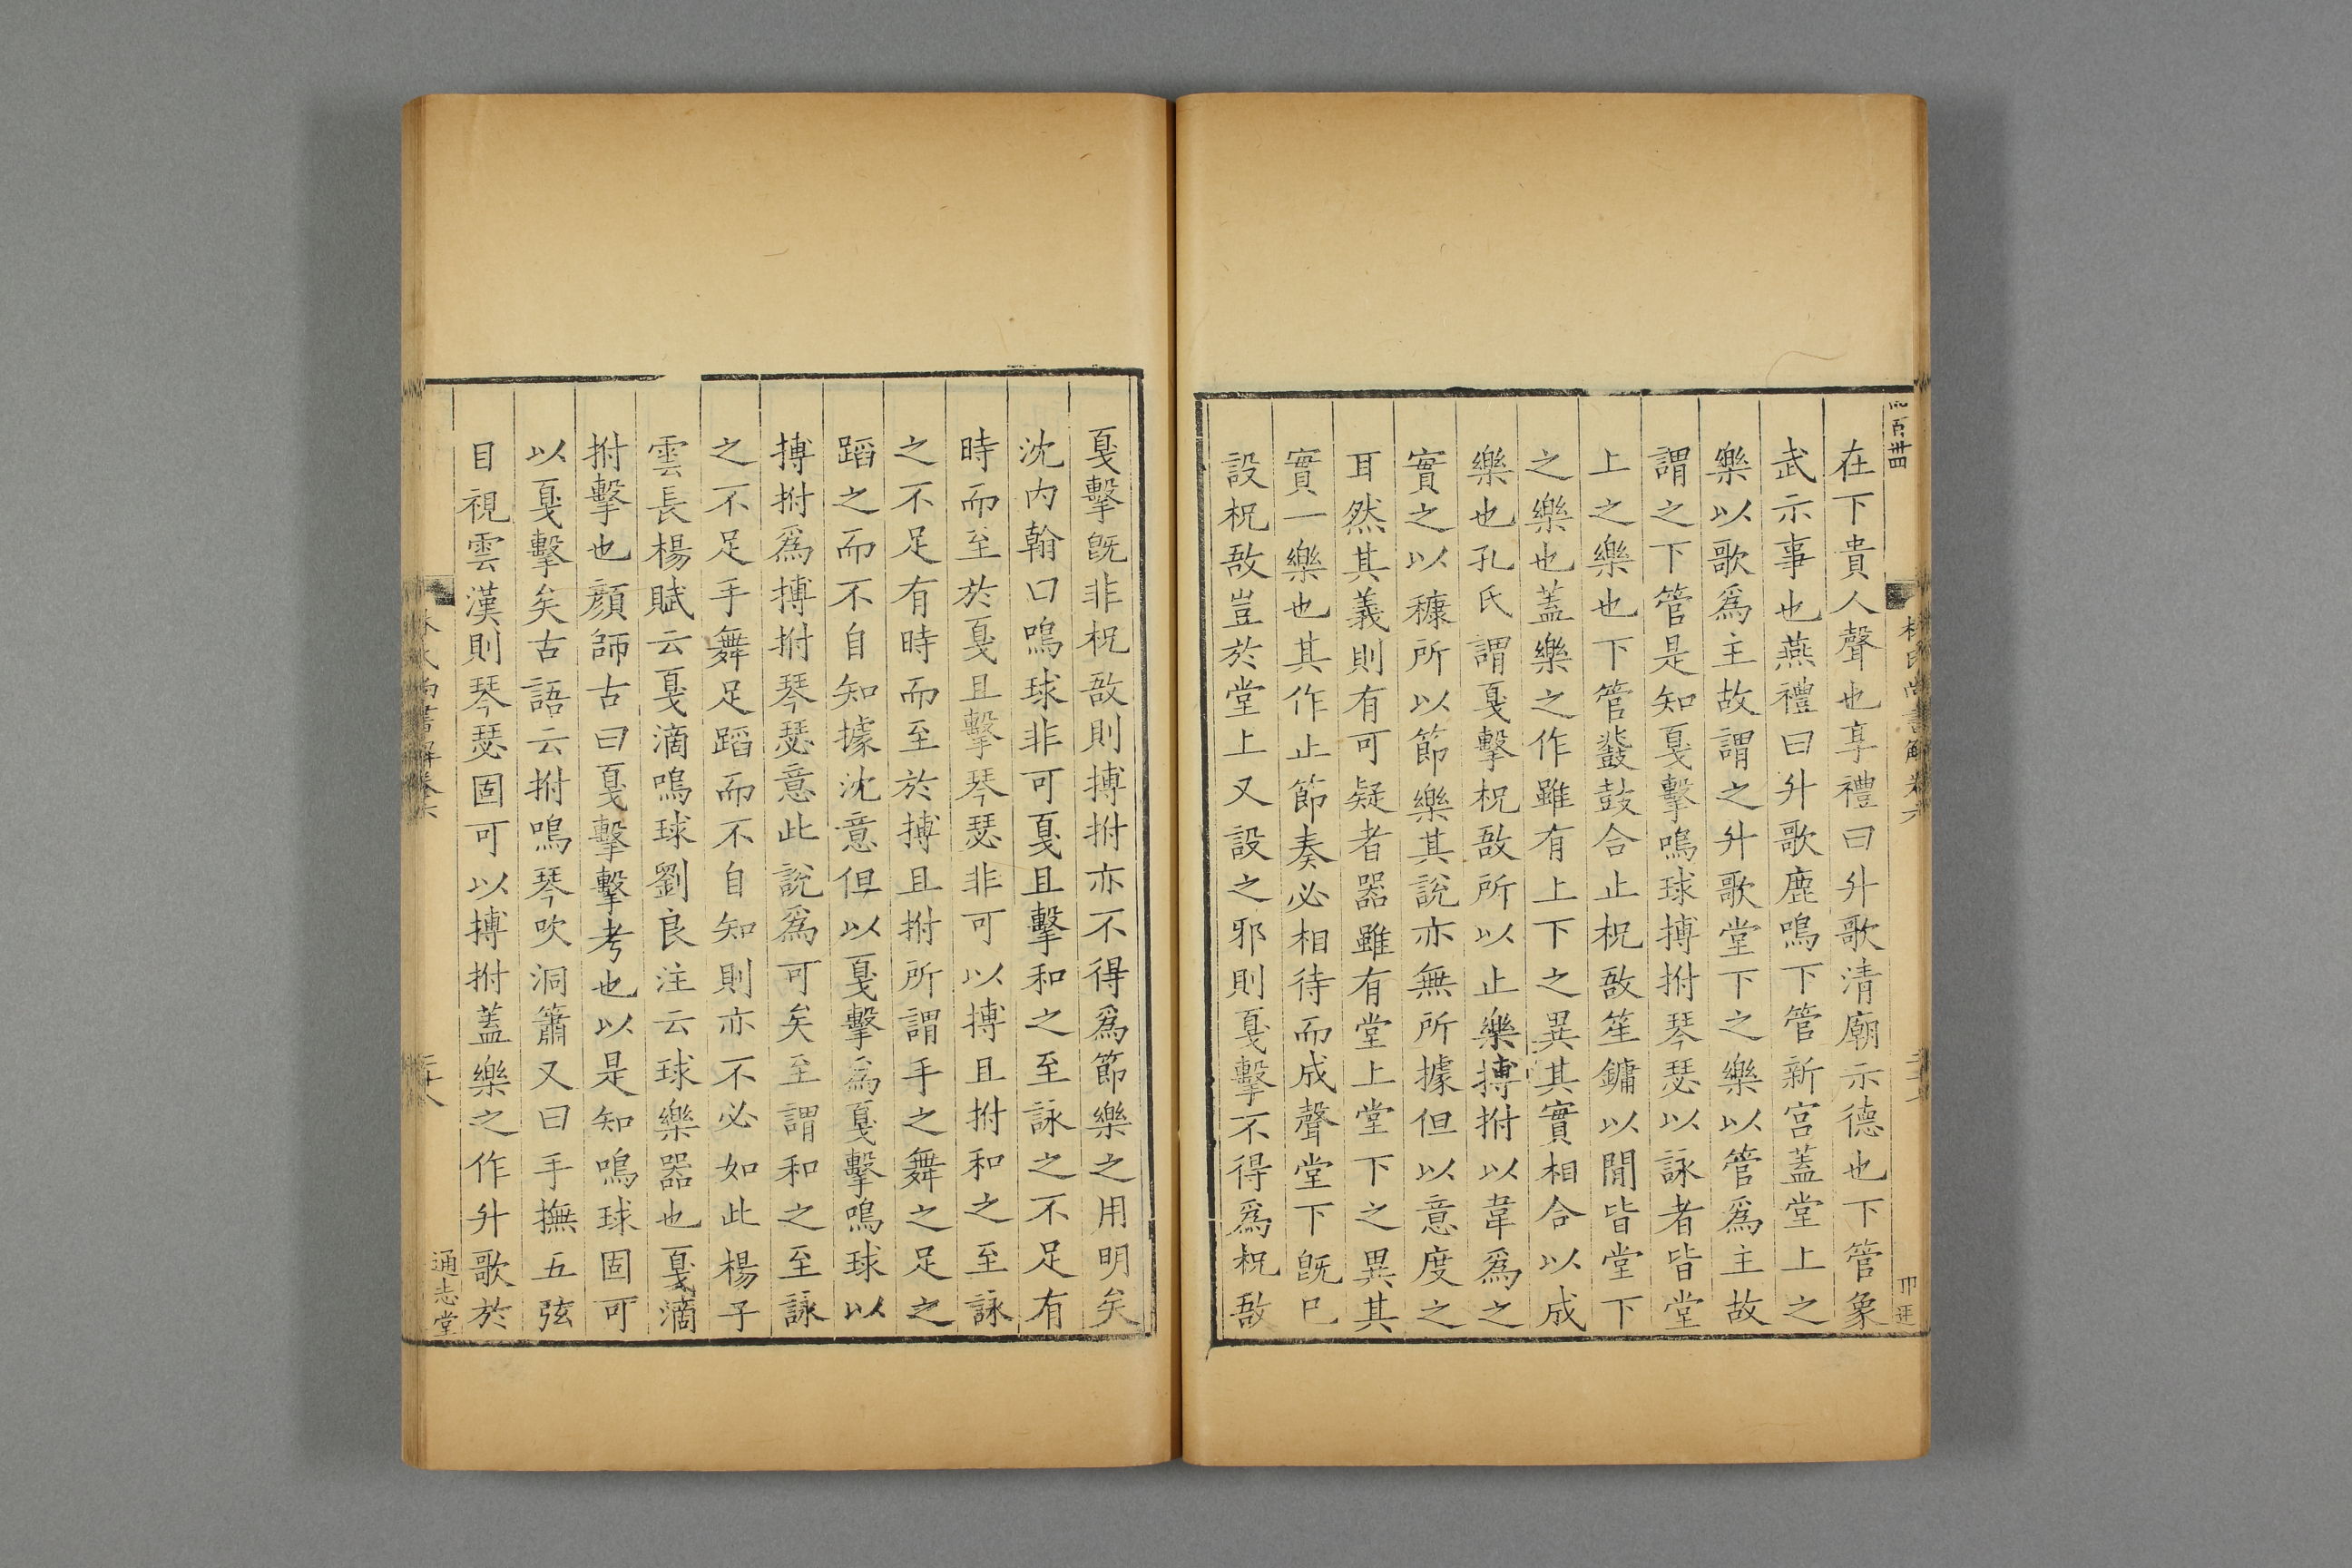 在下貴人聲也享禮曰升歌清廟示德也下管象
武示事也燕禮曰升歌鹿鳴下管新宮蓋堂上之
樂以歌爲主故謂之升歌堂下之樂以管爲主故
謂之下管是知戛擊鳴球搏拊琴瑟以詠者皆堂
上之樂也下管鼗鼓合止柷敔笙鏞以間皆堂下
之樂也蓋樂之作雖有上下之異其實相合以成
樂也孔氏謂戛擊柷敔所以止樂搏拊以韋爲之
實之以穅所以節樂其說亦無所據但以意度之
耳然其義則有可疑者器雖有堂上堂下之異其
實一樂也其作止節奏必相待而成聲堂下旣已
設柷敔豈於堂上又設之邪則戛擊不得爲柷敔
戛擊旣非柷敔則搏拊亦不得爲節樂之用明矣
沈內翰曰鳴球非可戛且擊和之至詠之不足有
時而至於戛且擊琴瑟非可以搏且拊和之至詠
之不足有時而至於搏且拊所謂手之舞之足之
蹈之而不自知據沈意但以戛擊爲戛擊鳴球以
搏拊爲搏拊琴瑟意此說爲可矣至謂和之至詠
之不足手舞足蹈而不自知則亦不必如此楊子
雲長楊賦云戛滴鳴球劉良注云球樂器也戛滴
拊擊也顏師古曰戛擊擊考也以是知鳴球固可
以戛擊矣古語云拊鳴琴吹洞簫又曰手撫五弦
目視雲漢則琴瑟固可以搏拊蓋樂之作升歌於
林氏尚書解卷六
通志堂